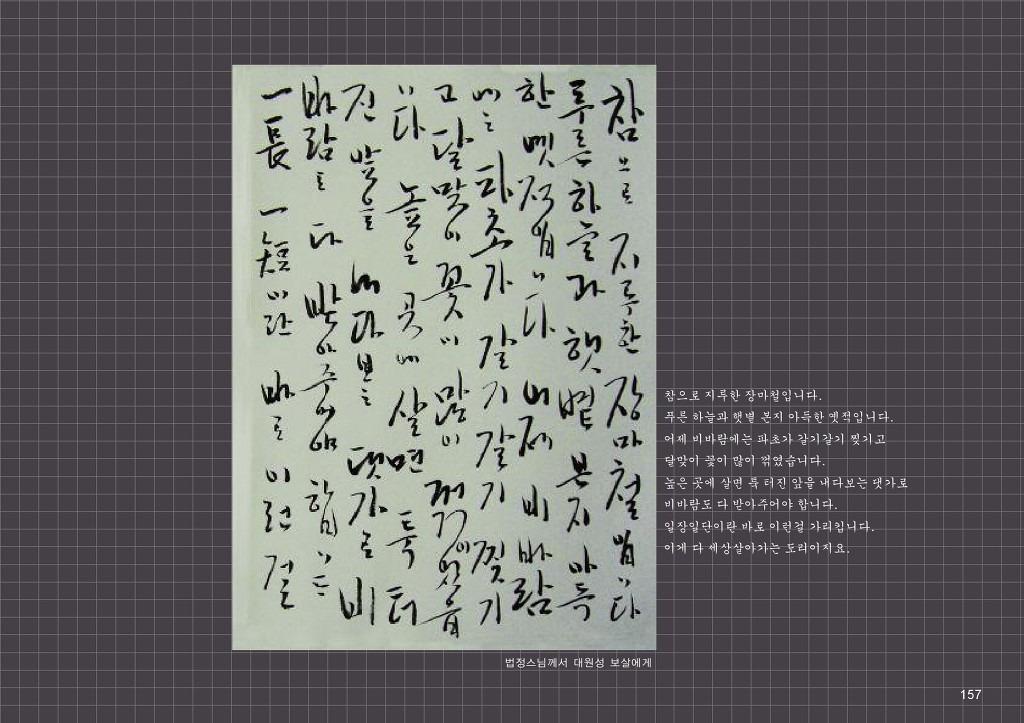 참으로 지루한 장마철입니다
푸른 하늘과 햇볕 본지 아득
한 옛적입니다 어제 비바람
에는 파초가 갈기갈기 찢기
고 달맞이꽃이 많이 꺾이었읍
니다 높은 곳에 살면 툭 터
진 앞을 내다보는 댓가로 비
바람도 다 받아주어야 합니다
一長一短이란 바로 이런걸
참으로 지루한 장마철입니다.
푸른 하늘과 햇볕 본지 아득한 옛적입니다.
어제 비바람에는 파초가 갈기갈기 찢기고
달맞이 꽃이 많이 꺾였습니다.
높은 곳에 살면 툭 터진 앞을 내다보는 댓가로
비바람도 다 받아주어야 합니다.
일장일단이란 바로 이런걸 가리킵니다.
이게 다 세상살아가는 도리이지요.
법정스님께서 대원성 보살에게
157